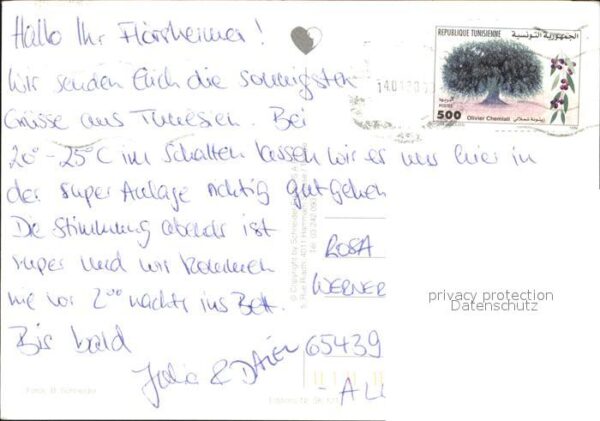 Hallo Ihr Flörsheimer!
Wir senden Euch die sonnigsten
Grüsse aus Tunesien. Bei
20° - 25°C im Schatten lassen wir es uns hier in
der super Anlage richtig gutgehen
Die Stimmung abends ist
super und wir kommen
nie vor 2⁰⁰ nachts ins Bett.
Bis bald
Julia &
REPUBLIQUE TUNISIENNE الجمهورية التونسية
500 Olivier Chemlali
© Copyright by Schneider
ROSA
WERNER
65439
- ALL
Foto: B. Schneider
privacy protection
Datenschutz